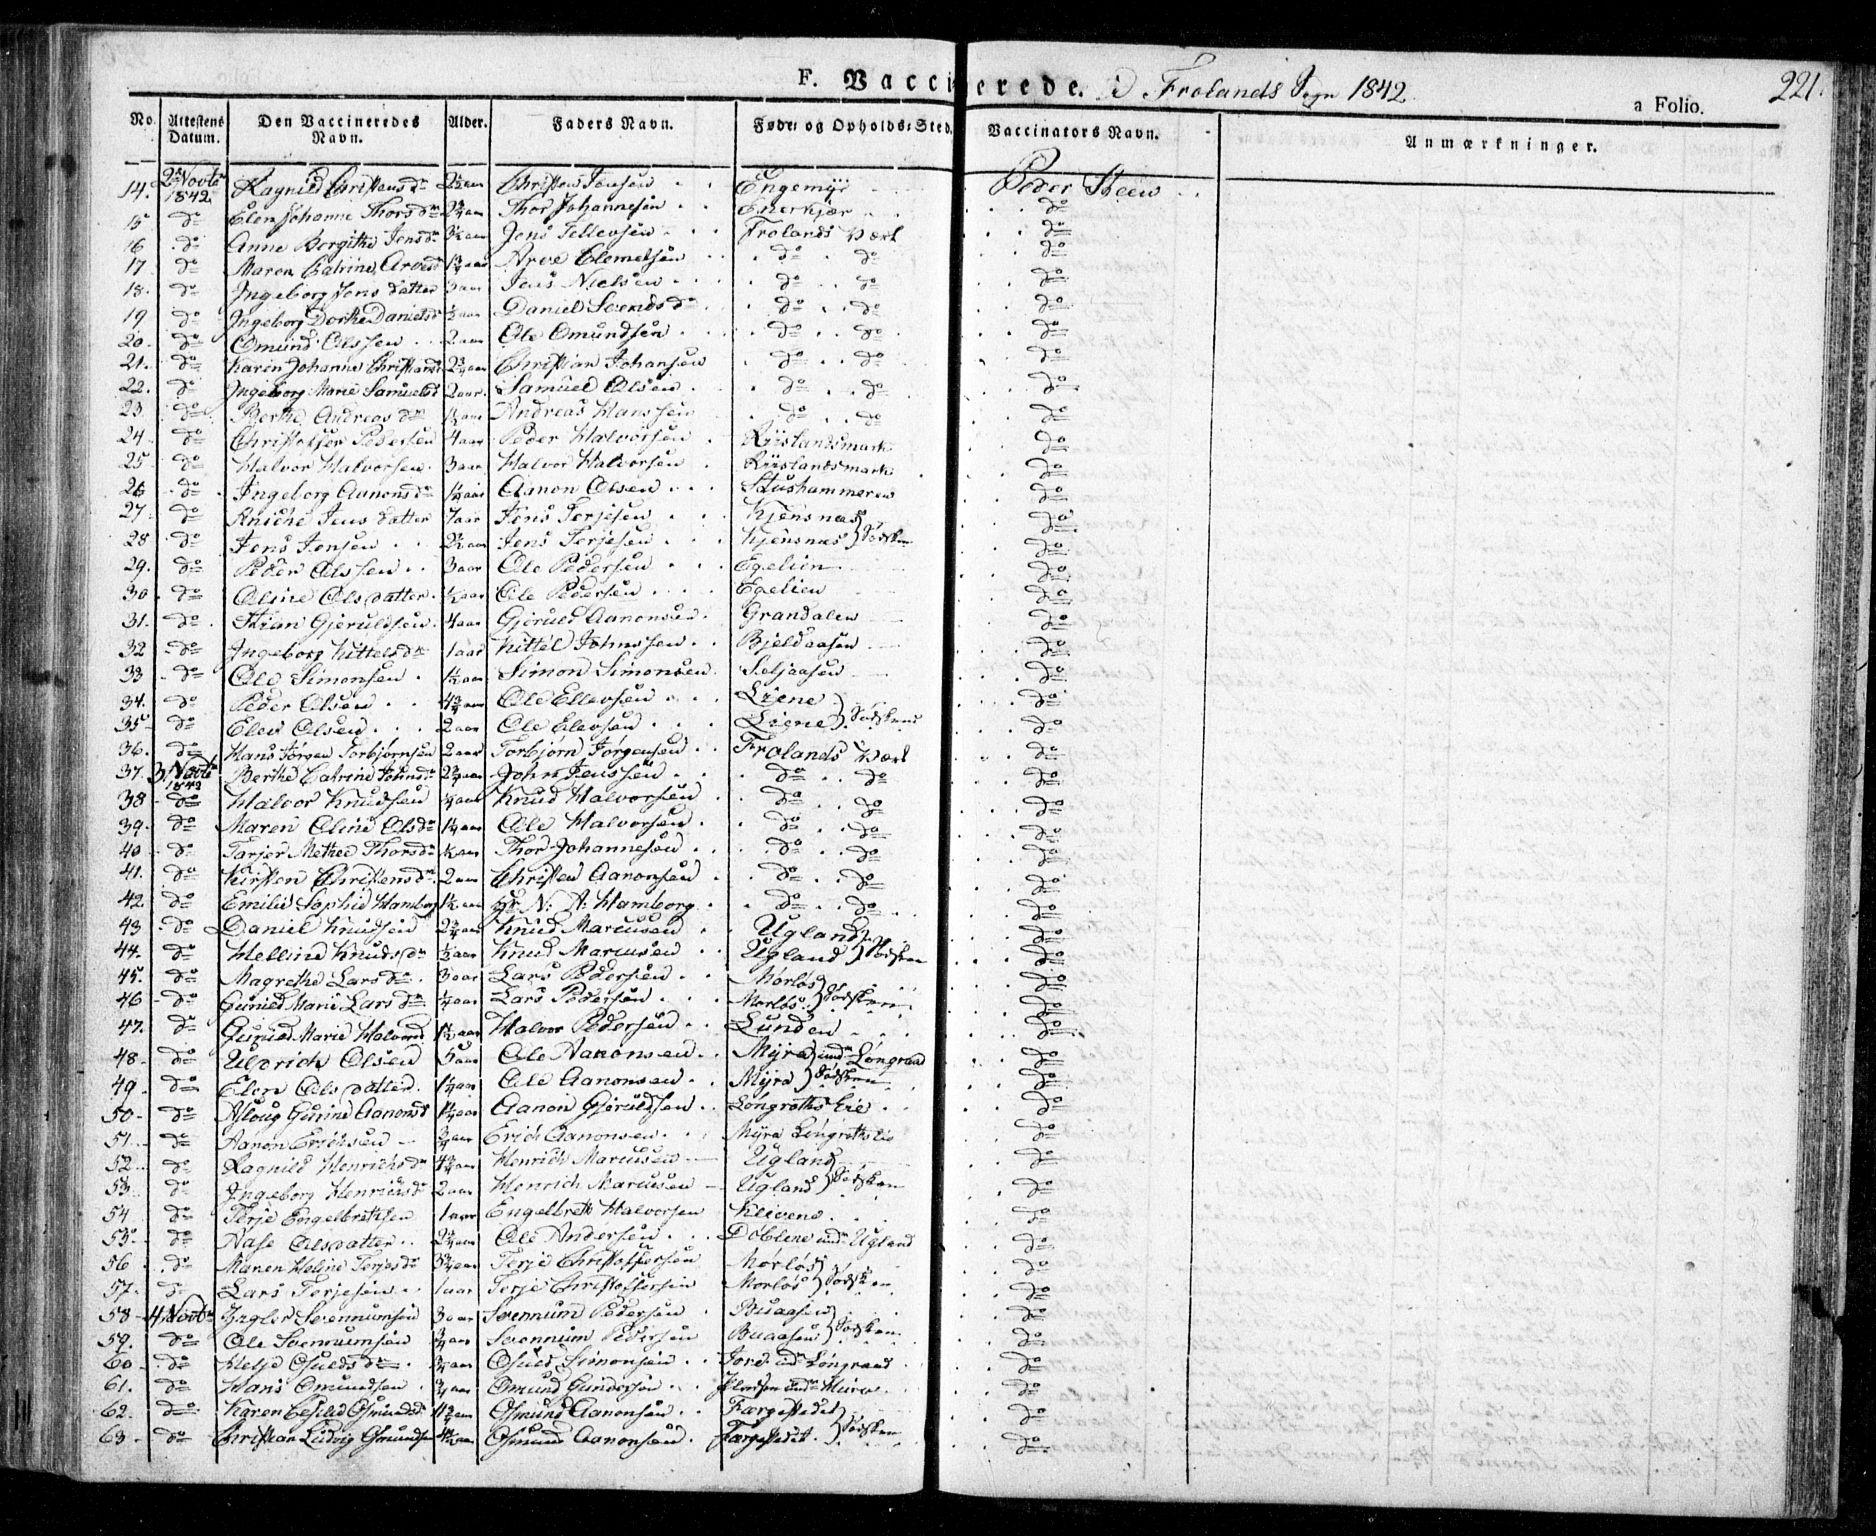 F. Vaccinerede. i Frolands Sogn 1842. 221.
a Folio.
No. Attestens Datum. Den Vaccineredes Navn. Alder. Faders Navn. Føde- og Opholds-Sted. Vaccinators Navn. Anmærkninger.
14. 2 Novbr 1842 Ragnild Christensdr 2½ aar Christen Jensen Engemyr Peder Steen
15 do Elen Johanne Thorsdr 2¾ aar Thor Johannesen Enerkjær do
16 do Anne Bergithe Jensdr 3½ aar Jens Tellevsen Frolands Værk do
17 do Maren Catrine Arvesdr 1¾ aar Arve Clemetsen do do do
18. do Ingeborg Jens datter 3 aar Jens Nielsen do do do
19 do Ingeborg Dorthe Danielsd ½ aar Daniel Svends do do do
20. do Omund Olssen 2 aar Ole Omundsen do do do
21. do Karen Johanne Christiansd 2¾ aar Christian Johansen do do do
22. do Ingeborg Marie Samuelsd 2 aar Samuel Olsen do do do
23 do Berthe Andreasdr 1½ aar Andreas Hanssen do do do
24 do Christopher Pedersen 4 aar Peder Halvorsen Riislandsmark do
25 do Halvor Halvorsen 3 aar Halvor Halvorsen Riislandsmark do
26 do Ingeborg Aanonsdr 1¾ aar Aanon Olsen Stushammeren do
27 do Kniche Jens datter 7 aar Jens Terjesen Kjensnæs do
28 do Jens Jensen 2½ aar Jens Terjesen Kjensnæs } Södsken do
29. do Peder Olssen 3 aar Ole Pedersen Egelien do
30 do Oline Ols datter ½ aar Ole Pedersen Egelien do
31. do Stian Gjeruldsen 4 aar Gjeruld Aanonsen Grandalen do
32 do Ingeborg Kittelsdr 1 aar Kittel Johnssen Bjeldaasen do
33 do Ole Simonsen 1½ aar Simon Simonsen Seljaasen do
34. do Peder Olsen 4¾ aar Ole Ellevsen Liene do
35 do Elev Olsen 2 aar Ole Elevsen Liene } Södskend do
36. do Hans Jörgen Torbjörnsen 2 aar Torbjörn Jörgensen Frolands Værk do
37. 3 Novbr 1842 Berthe Catrine Johnsdr 2¾ aar John Jenssen do do do
38 do Halvor Knudsen ¼ aar Knud Halvorsen do do do
39. do Maren Oline Olsdr 1¼ aar Ole Halvorsen do do do
40 do Tarjer Methee Thorsdr ½ aar Thor Johannesen do do do
41. do Kirsten Christensdr 2 aar Christen Aanonsen do do do
42 do Emilie Sophie Hamborg 1½ aar Hr N: A: Hamborg do do do
43 do Daniel Knudsen 2¾ aar Knud Marcusen Ugland do
44. do Helline Knudsdr ½ aar Knud Marcusen Ugland } Södsken do
45. do Magrethe Larsdr 3 aar Lars Pedersen Morlös do
46 do Guniel Marie Larsdr ¼ aar Lars Pedersen Morlös } Södsken do
47. do Guniel Marie Halvorsd 1½ aar Halvor Pedersen Lunden do
48 do Uldrich Olsen 5 aar Ole Aanonsen Myra } undr Löngraad do
49. do Elen Ols datter 1¼ aar Ole Aanonsen Myra } Södsken do
50 do Asloug Gurine Aanonsd 1¼ aar Aanon Gjeruldsen Löngroths Eie do
51. do Aanon Erichsen ¾ aar Erich Aanonsen Myra Löngroths Eie do
52 do Ragnild Henrichsdr 4¾ aar Henrich Marcusen Ugland do
53. do Ingeborg Henrichsdr 2 aar Henrich Marcusen Ugland } Södsken do
54 do Terje Engelbretsen 1 aar Engelbrett Halvorsen Klivene do
55. do Aase Olsdatter 2¾ aar Ole Andersen Döblene undr Ugland do
56 do Maren Helene Terjesdr 3¾ aar Terje Christophersen Mörlös do
57. do Lars Terjesen 1 aar Terje Christophersen Morlös } Södsken do
58 4 Novbr Zagler Svennumsen 3 aar Svennum Pedersen Buaasen do
59. do Ole Svennumsen ¾ aar Svennum Pedersen Buaasen } Södsken do
60 do Helje Osuldsdr ¾ aar Osuld Simonsen undr Löngraad do
61. do Hans Omundsen ¾ aar Omund Gundersen undr Mura do
62. do Karen Cesilie Osmundsd 1¾ aar Osmund Aanonsen Færgestedet do
63 do Christian Ludvig Osmundsen 4¾ aar Osmund Aanonsen Færgestedet } Södsken do